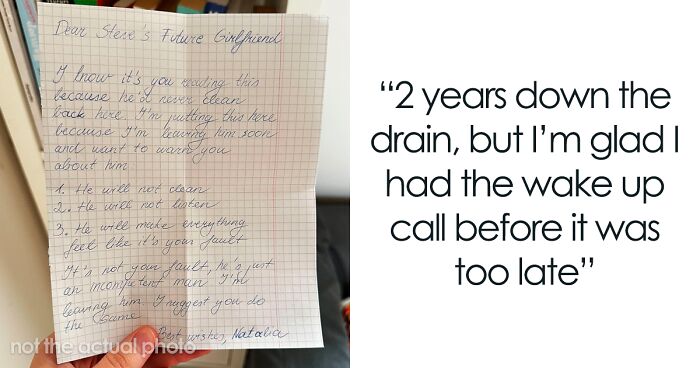 Dear Steve's Future Girlfriend
I know it's you reading this
because he'd never clean
back here. I'm putting this here
because I'm leaving him soon
and want to warn you
about him
1. He will not clean
2. He will not listen
3. He will make everything
feel like it's your fault
It's not your fault, he's just
an incompetent man. I'm
leaving him. I suggest you do
the same
Best wishes, Natalia
not the actual photo
“2 years down the
drain, but I’m glad I
had the wake up
call before it was
too late”